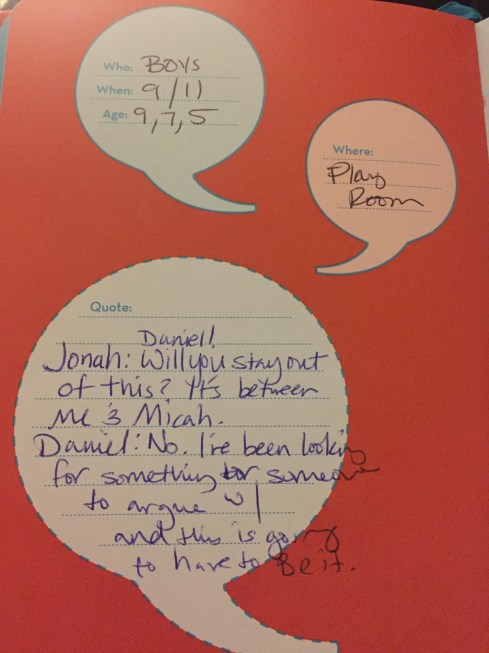 Who: Boys
When: 9/11
Age: 9, 7, 5
Where:
Play
Room
Quote:
Daniel!
Jonah: Will you stay out
of this? It's between
me & Micah.
Daniel: No. I've been looking
for something or someone
to argue w/
and this is going
to have to be it.